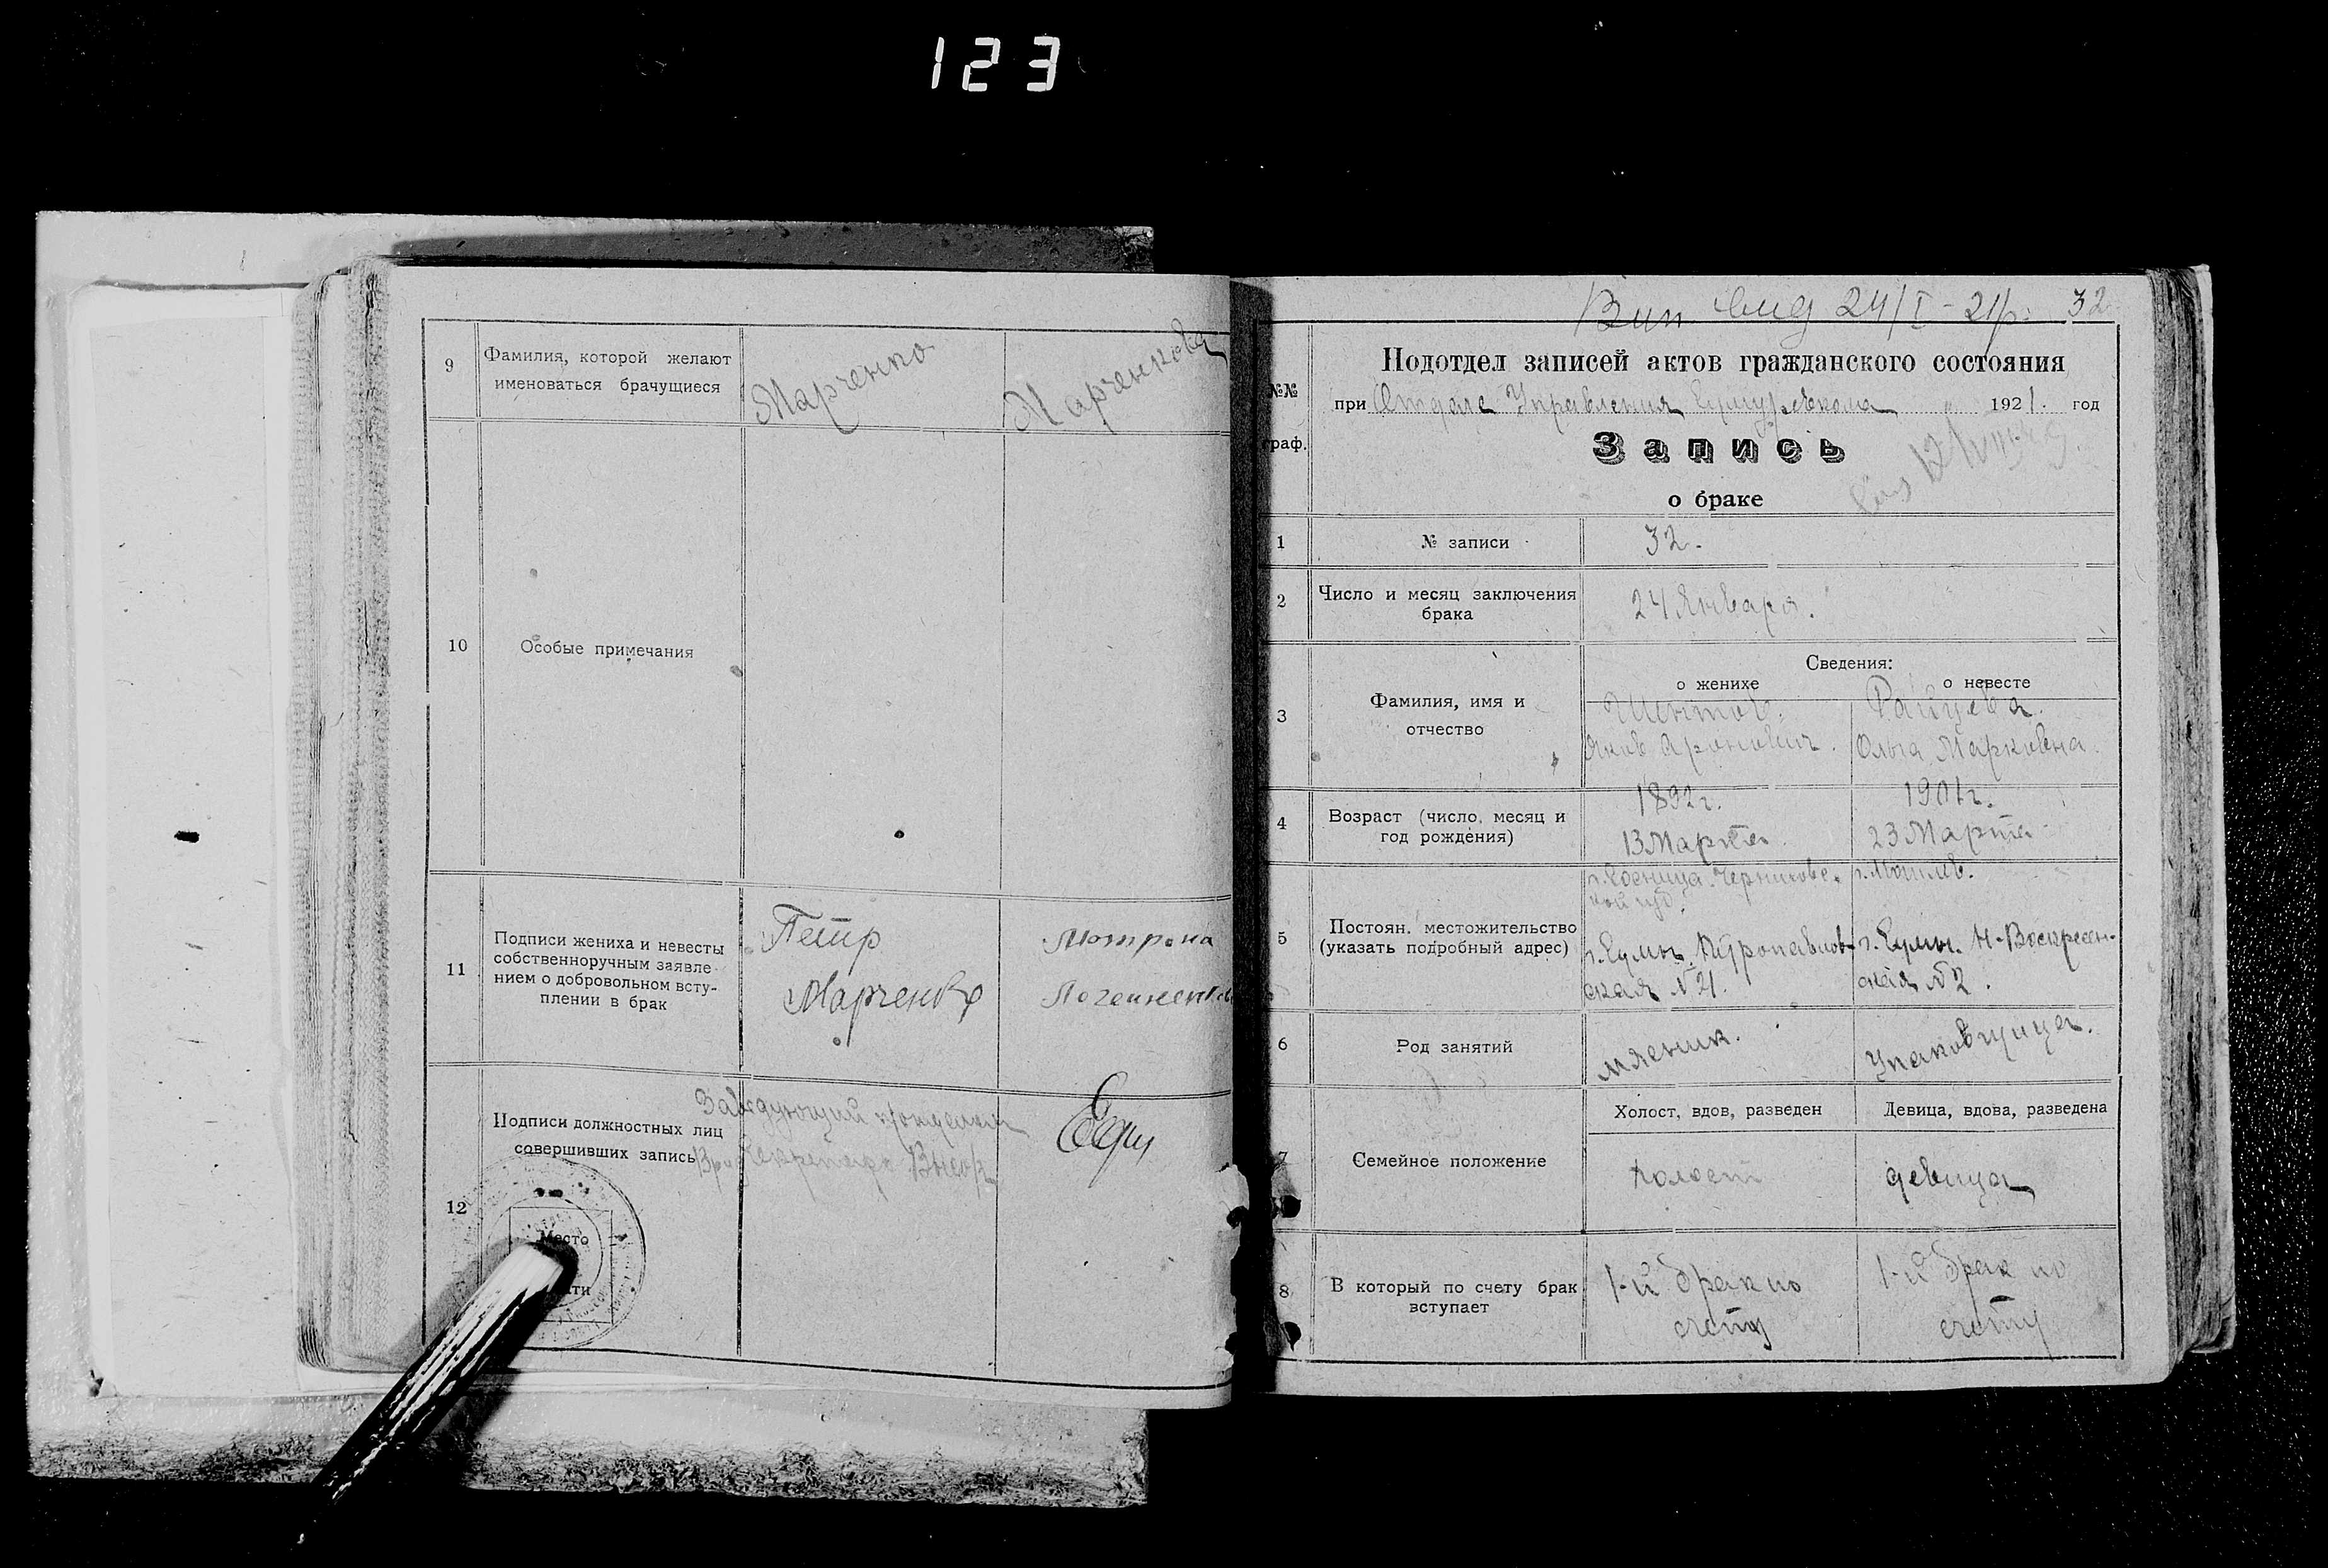 123
9
Фамилия, которой желают
именоваться брачущиеся
Марченко
Марченкова
10
Особые примечания
11
Подписи жениха и невесты
собственноручным заявле-
нием о добровольном всту-
плении в брак
Петр
Марченко
Мотрона
12
Подписи должностных лиц
совершивших запись
Заведующий
Место
Вип. 24/I-21р. 32
№№
граф.
Подотдел записей актов гражданского состояния
при Отделе Управления 1921. год
Запись
о браке
1
№ записи
32.
2
Число и месяц заключения
брака
24 Января.
3
Фамилия, имя и
отчество
Сведения:
о женихе
о невесте
Яков Аронович.
Ольга Марковна.
4
Возраст (число, месяц и
год рождения)
1892 г.
13 Марта
1901 г.
23 Марта
5
Постоян. местожительство
(указать подробный адрес)
г. Сумы.
ская №
г. Могилев.
г. Сумы. Н-Воскресен-
ская №2.
6
Род занятий
мясник.
Упаковщица.
7
Семейное положение
Холост, вдов, разведен
Девица, вдова, разведена
холост
девица
8
В который по счету брак
вступает
1-й брак по
счету
1-й брак по
счету